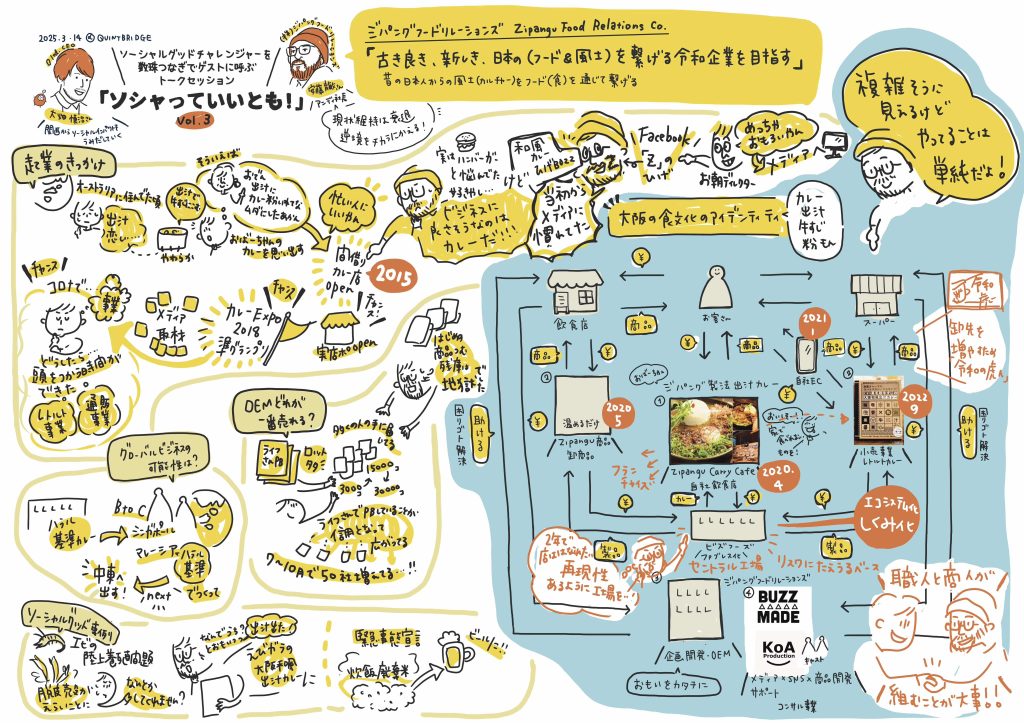 2025.3.14 @QUINTBRIDGE
ソーシャルグッドチャレンジャーを
数珠つなぎでゲストに呼ぶ
トークセッション
「ソシャっていいとも!」
Vol.3
ジパングフードリレーションズ Zipangu Food Relations Co.
「古き良き、新しき、日本の(フード&風土)を繋げる令和企業を目指す」
昔の日本人からの風土(カルチャー)をフード(食)を通じて繋げる
現状維持は衰退
逆境をチカラにかえる!
複雑そうに
見えるけど
やってることは
単純だよ!
起業のきっかけ
オーストラリアに住んでた頃
出汁
恋し…
出汁で
牛すじこ
やわらか
そういえば
おでん
出汁に
カレー粉いれな
ムダにしたあかん
おばーちゃんの
カレーを思い出す
忙しい人に
いいやん
間借り
カレー店
open
2015
ビジネスに
はカレーだ!!!
実はハンバーガー
と悩んでた
和風
カレー
けどひばりBUZZ
当初から
メディアに
慣れてた
Facebook
「Z」の
ひげ
めっちゃ
おもろいやん
お朝ディレクター
メディア
大阪の食文化のアイデンティティ
カレー
出汁
牛すじ
粉モん
チャンス
コロナで…
事業
どうしたら…
頭をつかう時間が
できた。
レトルト
事業
通販
事業
メディア
取材
チャンス
カレーEXPO
2018
準グランプリ
チャンス!
実店舗open
はじめ
商品つむ
残庫は
地獄でした
OEMどれが
一番売れる?
ライフ
さんPB
ロット
多々
多くの人の手に届
してる
3000コ
15000コ
30000コ
ライフさんでPBしているコトが
信頼となって
広がってる
7〜10月で50社増えてる…!!
グローバルビジネスの
可能性は?
ハラル
基準カレー
BtoC
シンガポール
マレーシアでハラル
基準
でつくって
next
中東へ
出す!
ソーシャルグッド事例
エビの
陸上養殖問題
なんとか
タしてくれません?
なんでうち?
とおもいつつ
出汁出た!
えびガラの
大阪和風
出汁カレーに
緊急事態宣言
炊飯廃棄米
ビールに
飲食店
お客さん
スーパー
商品
商品
商品
商品
商品
2021
1
自社EC
令和
虎
卸先を
増やすため
令和の虎へ
困リゴト解決
助ける
困リゴト解決
助ける
②
温めるだけ
Zipangu商品
卸商品
2020
5
おばーちゃん
ジパング製法 出汁カレー
①
Zipangu Curry Cafe
自社飲食店
2020.
4
おいしー!
家で
食べれない
ものを!
③
2022
9
小売事業
レトルトカレー
フラン
チャイズ
カレー
エコシステム化
しくみ化
ビズフーズ
ファブレス化
セントラル工場
リスクにたえうるベース
製品
製品
2年で
店ははなれた…
再現性
あるように工場を…!
③
企画開発・OEM
おもいをカタチに
ジパングフードリレーションズ
④
BUZZ
MADE
KoA
Production
キャスト
メディア×SNS×商品開発
サポート
コンサル事業
職人と商人が
組むことが大事!!